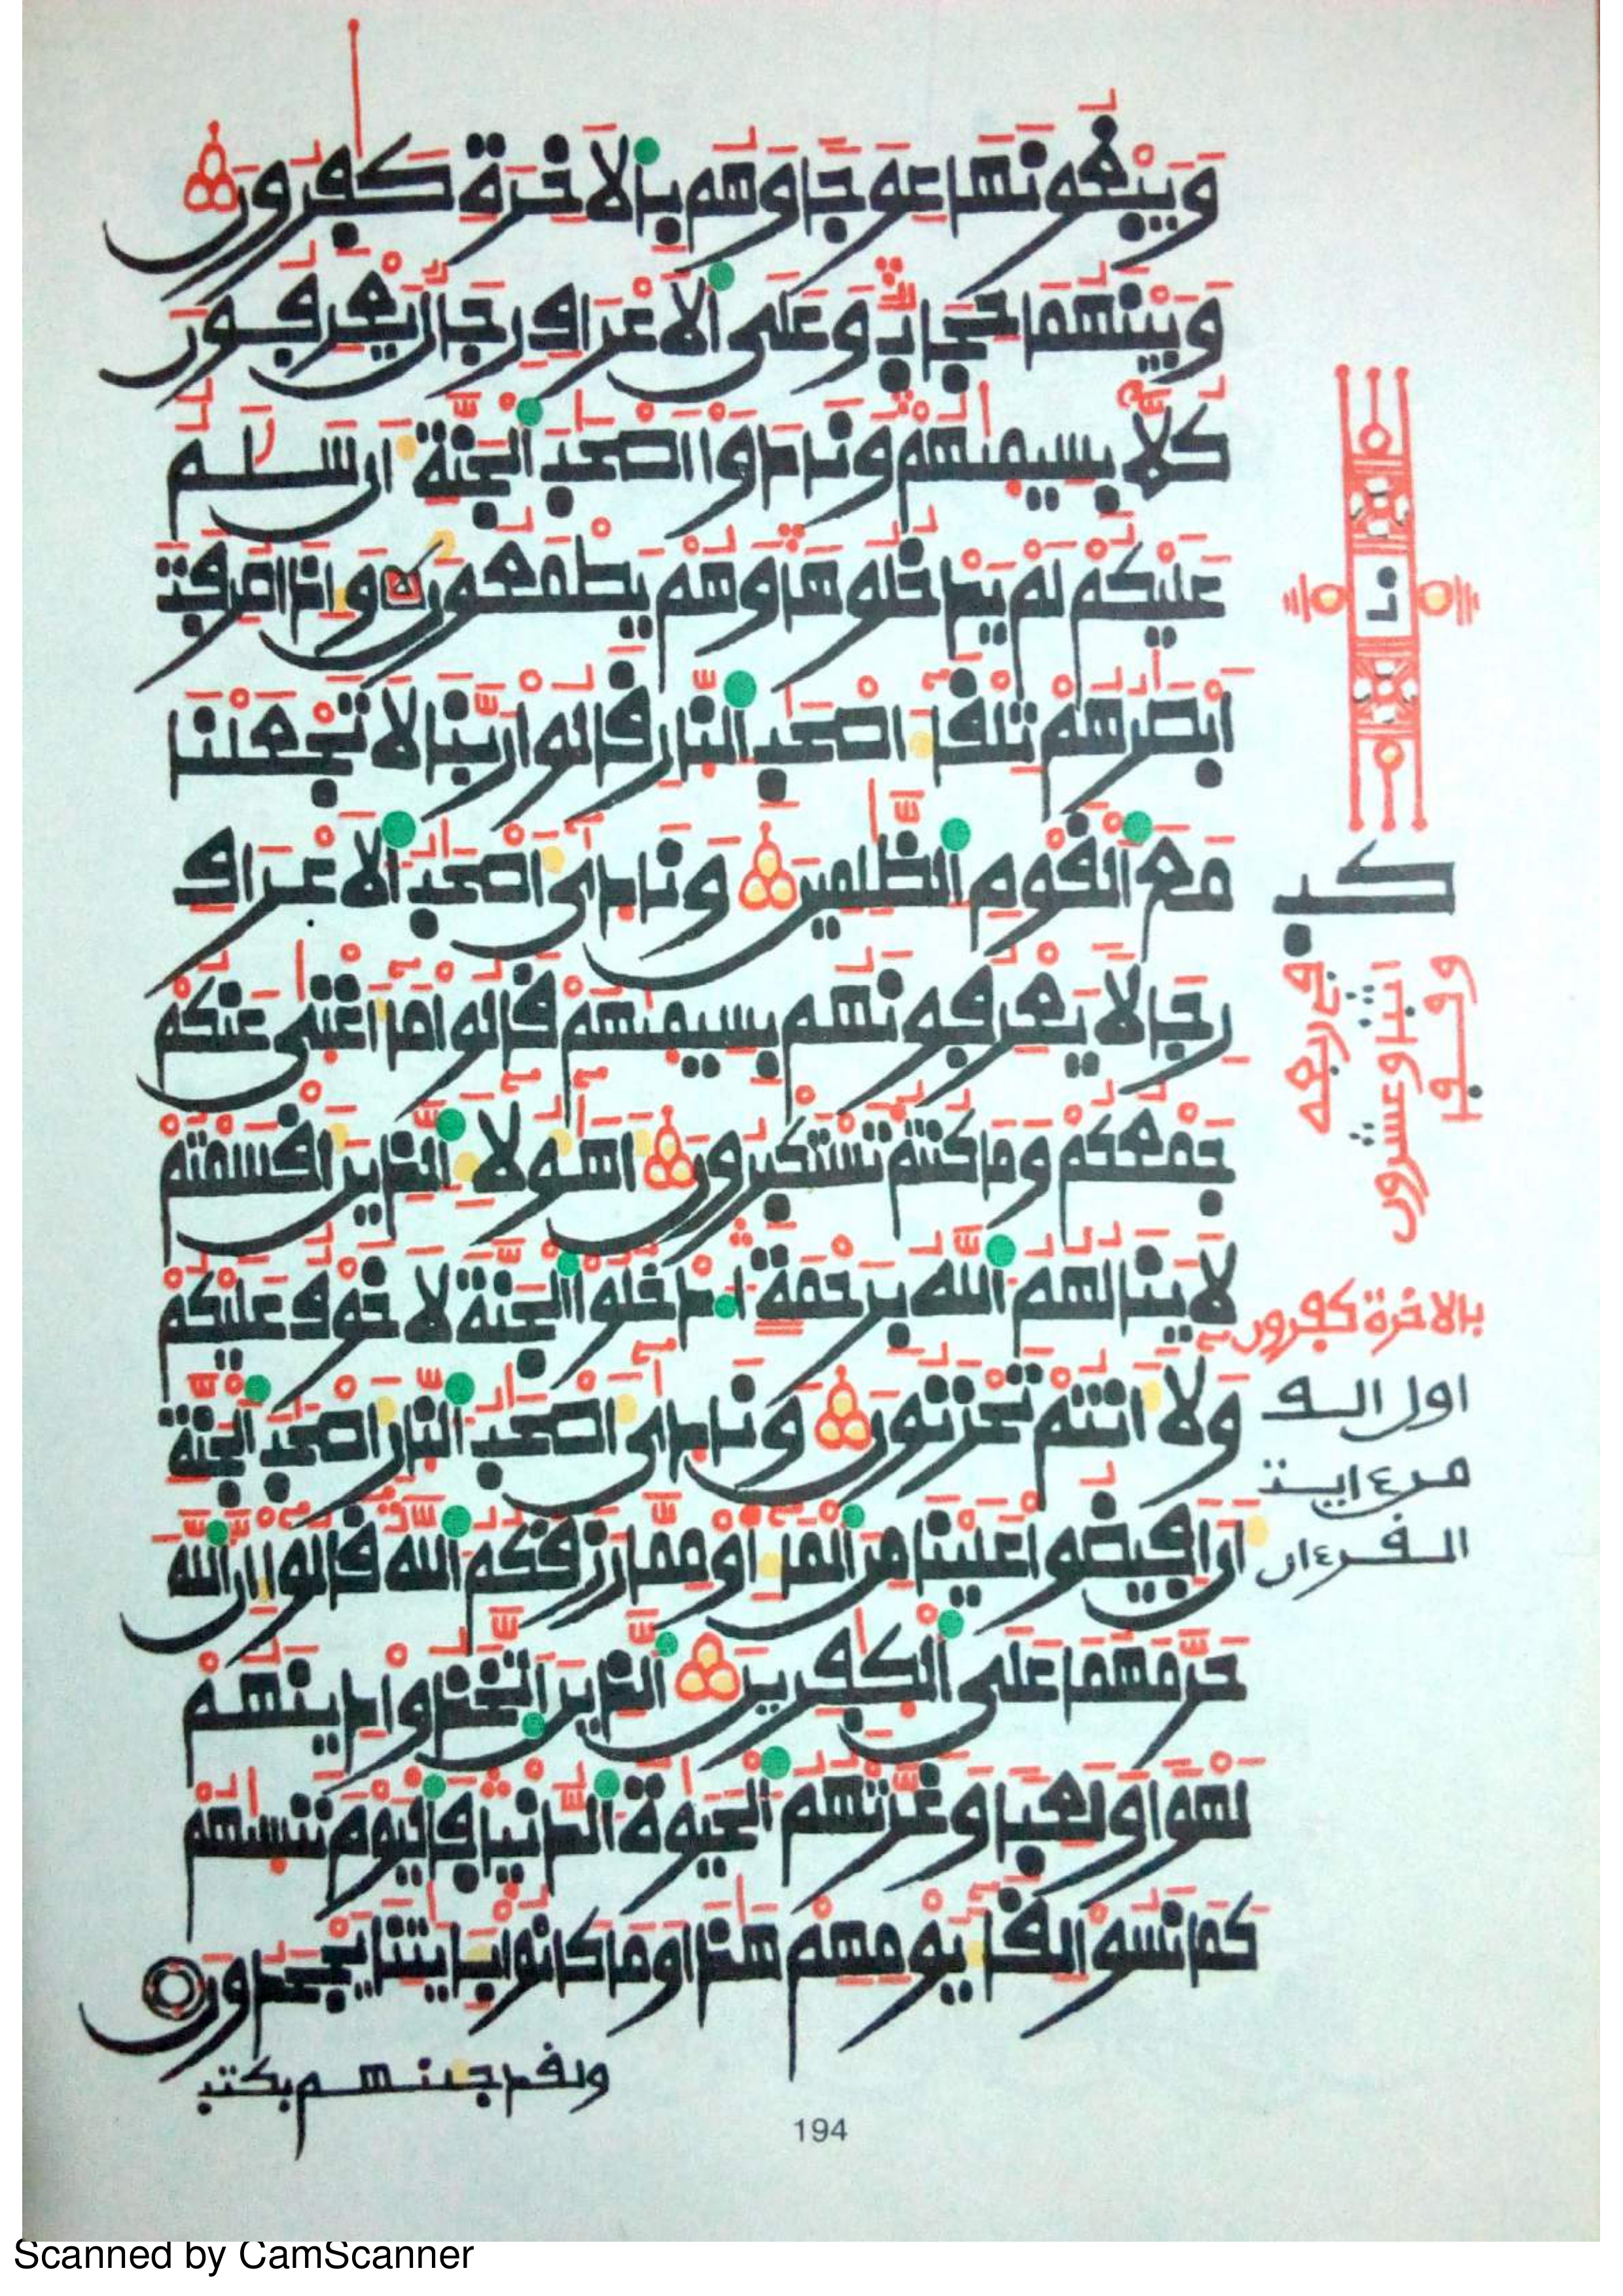 وَيَبْغُونَهَا عِوَجًا وَهُم بِالَاخِرَةِ كَٰفِرُونَ
وَبَيْنَهُمَا حِجَابٌ وَعَلَى الَاعْرَافِ رِجَالٌ يَعْرِفُونَ
كُلَّا بِسِيمَٰهُمْ وَنَادَوَا اصْحَٰبَ الْجَنَّةِ أَن سَلَٰمٌ
عَلَيْكُمْ لَمْ يَدْخُلُوهَا وَهُمْ يَطْمَعُونَ وَإِذَا صُرِفَتَ
ابْصَٰرُهُمْ تِلْقَا أَصْحَٰبِ النَّارِ قَالُوا رَبَّنَا لَا تَجْعَلْنَا
مَعَ الْقَوْمِ الظَّٰلِمِينَ وَنَادَىٰ أَصْحَٰبُ الَاعْرَافِ
رِجَالًا يَعْرِفُونَهُم بِسِيمَٰهُمْ قَالُوا مَا أَغْنَىٰ عَنكُمْ
جَمْعُكُمْ وَمَا كُنتُمْ تَسْتَكْبِرُونَ أَهَٰؤُلَاءِ الَّذِينَ أَقْسَمْتُمْ
لَا يَنَالُهُمُ اللَّهُ بِرَحْمَةٍ ادْخُلُوا الْجَنَّةَ لَا خَوْفٌ عَلَيْكُمْ
وَلَا أَنتُمْ تَحْزَنُونَ وَنَادَىٰ أَصْحَٰبُ النَّارِ أَصْحَٰبَ الْجَنَّةِ
أَنَ افِيضُوا عَلَيْنَا مِنَ الْمَاءِ أَوْ مِمَّا رَزَقَكُمُ اللَّهُ قَالُوا إِنَّ اللَّهَ
حَرَّمَهُمَا عَلَى الْكَٰفِرِينَ الَّذِينَ اتَّخَذُوا دِينَهُمْ
لَهْوًا وَلَعِبًا وَغَرَّتْهُمُ الْحَيَوٰةُ الدُّنْيَا فَالْيَوْمَ نَنسَىٰهُمْ
كَمَا نَسُوا لِقَاءَ يَوْمِهِمْ هَٰذَا وَمَا كَانُوا بِـَٔايَٰتِنَا يَجْحَدُونَ
ولقد جينهم بكتب
نا
كب
وقف
اثنا وعشرون
في ربعه
بالاخرة كفرون
اول الف
من ءاية
القرءان
194
Scanned by CamScanner